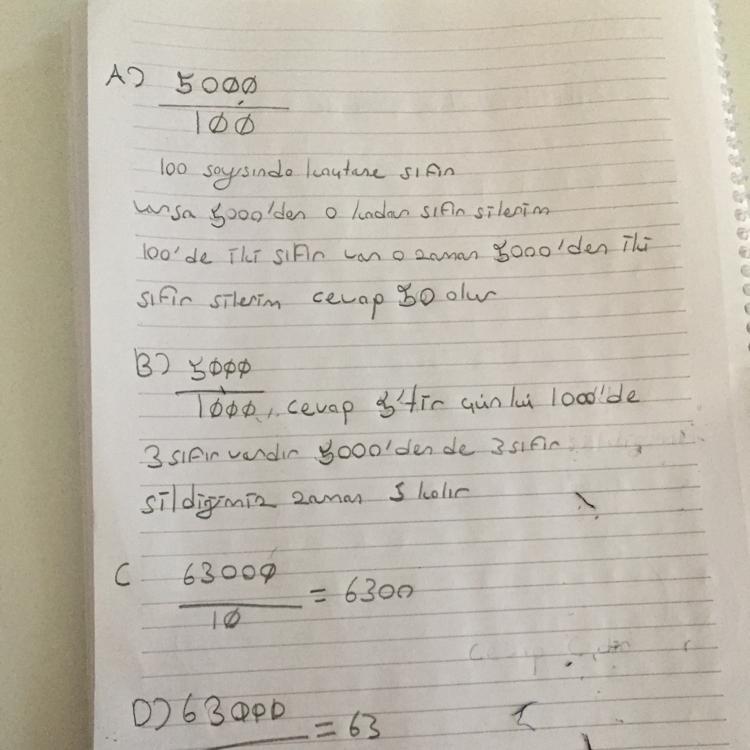 A) 5000
100
100 sayısında kaytane sıfır
varsa 5000'den o kadar sıfır silerim
100'de iki sıfır var o zaman 5000'den iki
sıfır silerim cevap 50 olur
B) 5000
1000, cevap 5'tir çünkü 1000'de
3 sıfır vardır 5000'den de 3 sıfır
sildiğimiz zaman 5 kalır
C 63000
10
= 6300
D) 63000
= 63